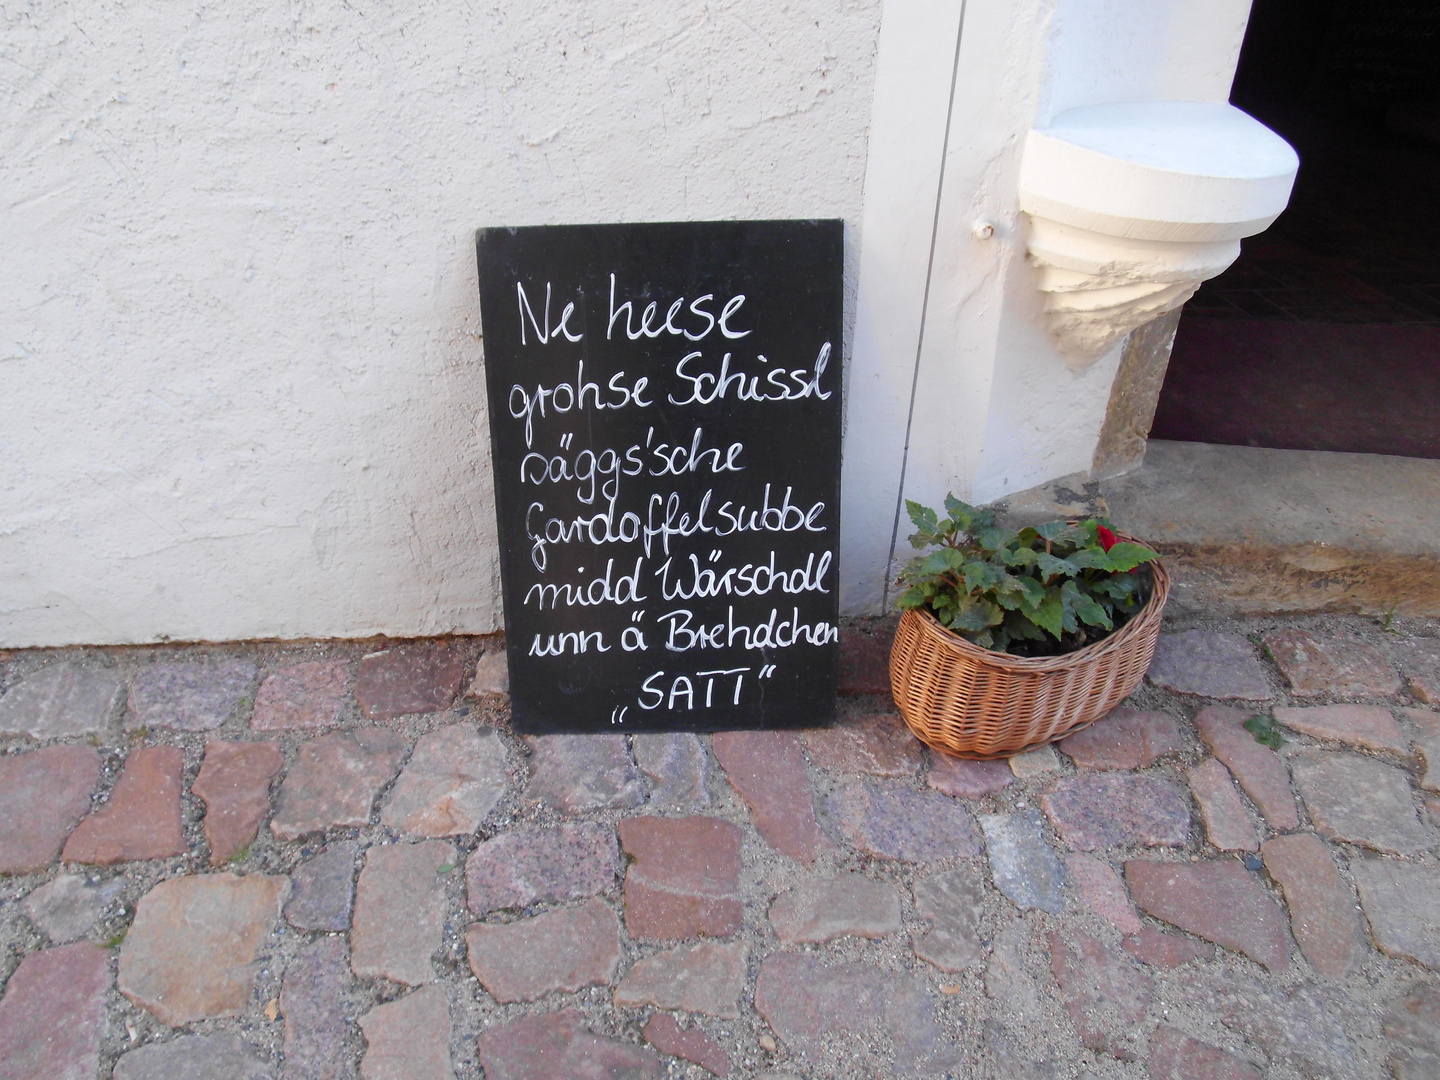 Ne heese
grohse Schissl
säggs'sche
Gardoffelsubbe
midd Wärschdl
unn ä Brehdchen
„SATT"